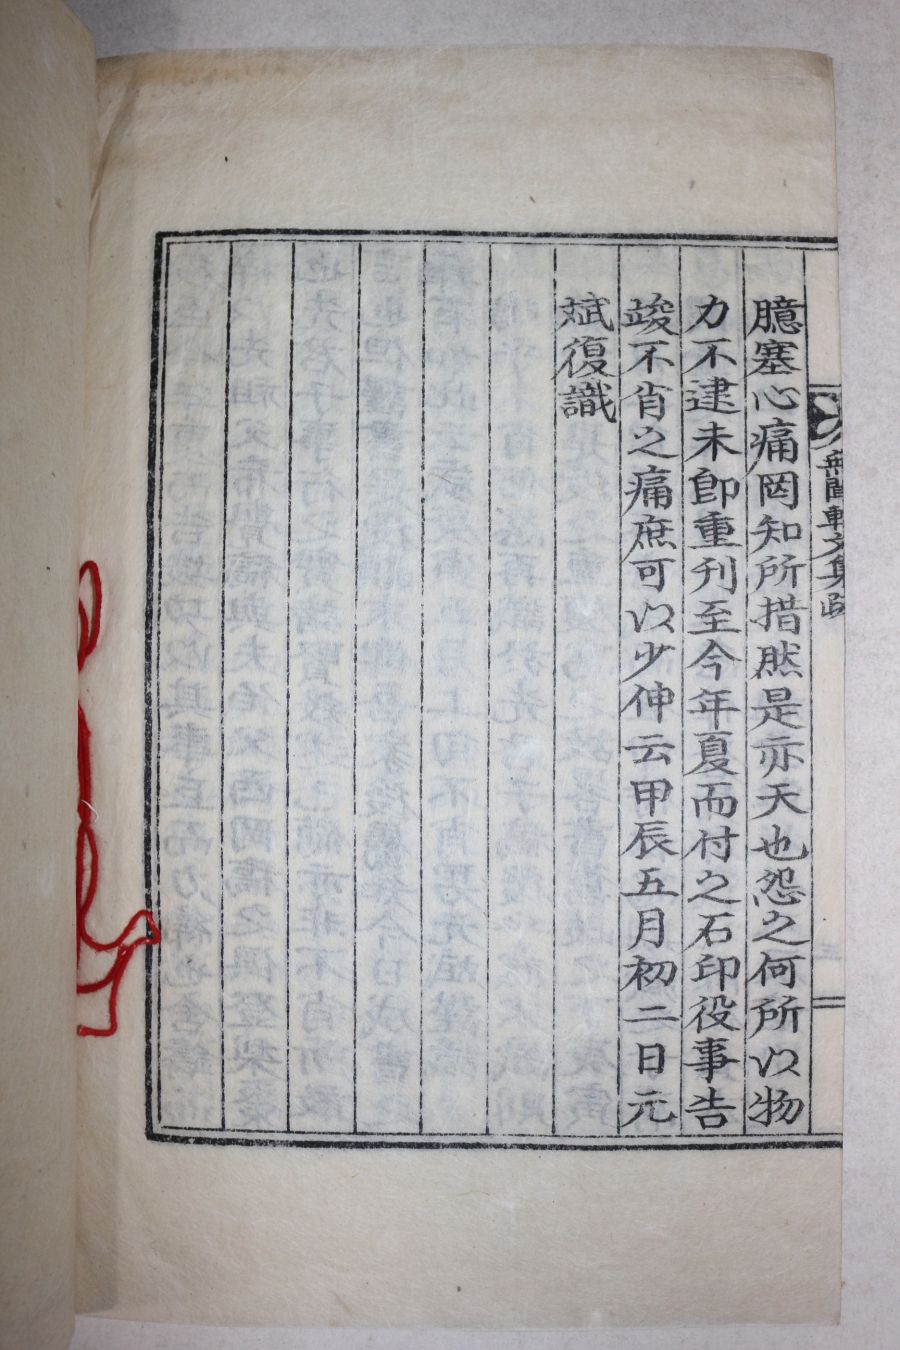 臆塞心痛罔知所措然是亦天也怨之何所以物
力不逮未卽重刊至今年夏而付之石印役事告
竣不肖之痛庶可以少伸云甲辰五月初二日元
斌復識
無聞軒文集跋
三